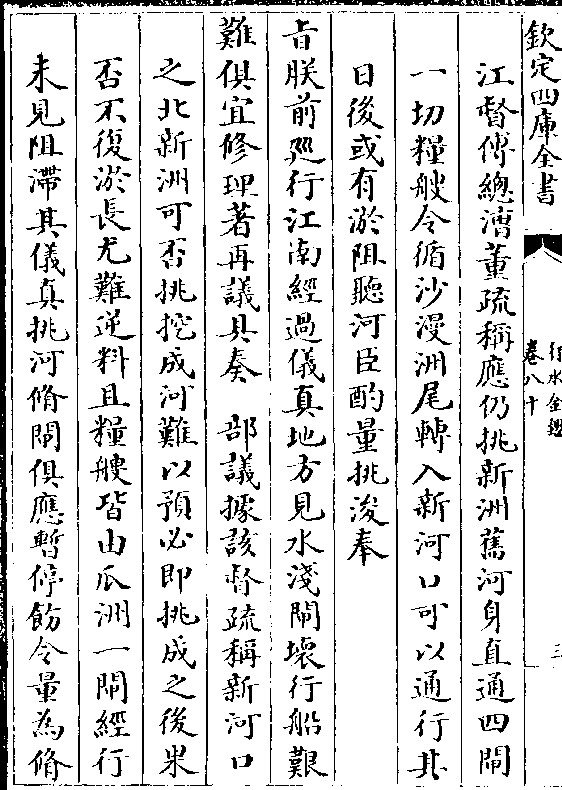 欽定四庫全書
行水金鑑
卷八十
三
江督傅總漕董疏稱應仍挑新洲舊河身直通四閘
一切糧艘令循沙漫洲尾轉入新河口可以通行其
日後或有淤阻聽河臣酌量挑浚奉
㫖朕前廵行江南經過儀真地方見水淺閘壊行船艱
難俱宜修理著再議具奏 部議據該督疏稱新河口
之北新洲可否挑挖成河難以預必即挑成之後果
否不復淤長尤難逆料且糧艘皆由瓜洲一閘經行
未見阻滯其儀真挑河脩閘俱應暫停飭令量為脩